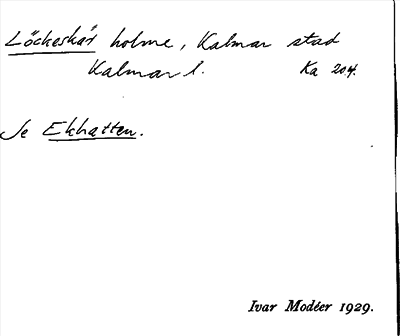 Löckeskär holme, Kalmar stad
Kalmar l. Ka 204.
Se Ekhatten.
Ivar Modéer 1929.